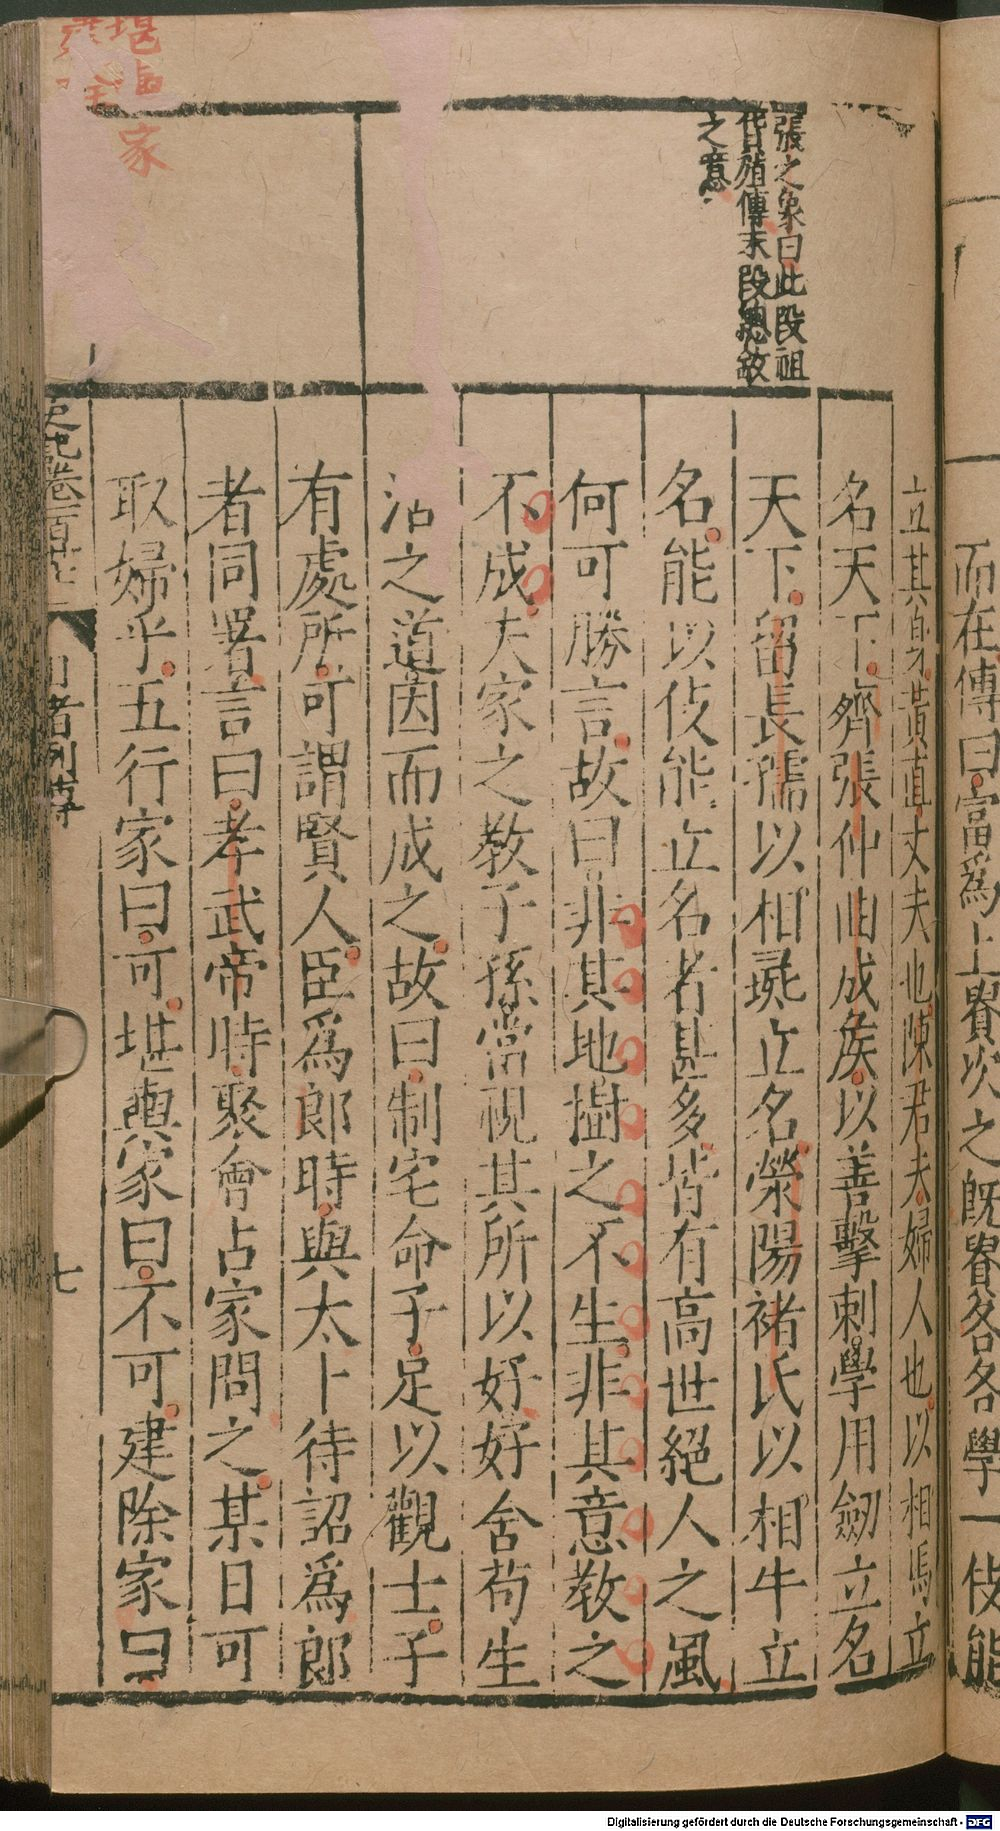 而在傳曰富爲上貴次之旣貴各各學一伎能
立其身黃直丈夫也陳君夫婦人也以相馬立
名天下齊張仲曲成侯以善擊刺學用劒立名
天下留長孺以相彘立名滎陽褚氏以相牛立
名能以伎能立名者甚多皆有高世絕人之風
何可勝言故曰非其地樹之不生非其意敎之
不成夫家之敎子孫當視其所以好好含苟生
活之道因而成之故曰制宅命子足以觀士子
有處所可謂賢人臣爲郎時與太卜待詔爲郎
者同署言曰孝武帝時聚會占家問之某日可
取婦乎五行家曰可堪輿家曰不可建除家曰
張之象曰此段祖
貨殖傳末段總敘
之意
史記卷一百廿七 日者列傳 七
家
Digitalisierung gefördert durch die Deutsche Forschungsgemeinschaft - DFG